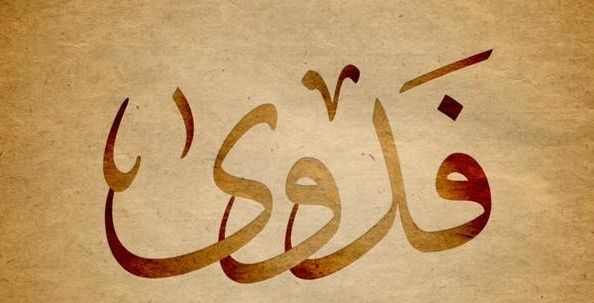 فَدوى